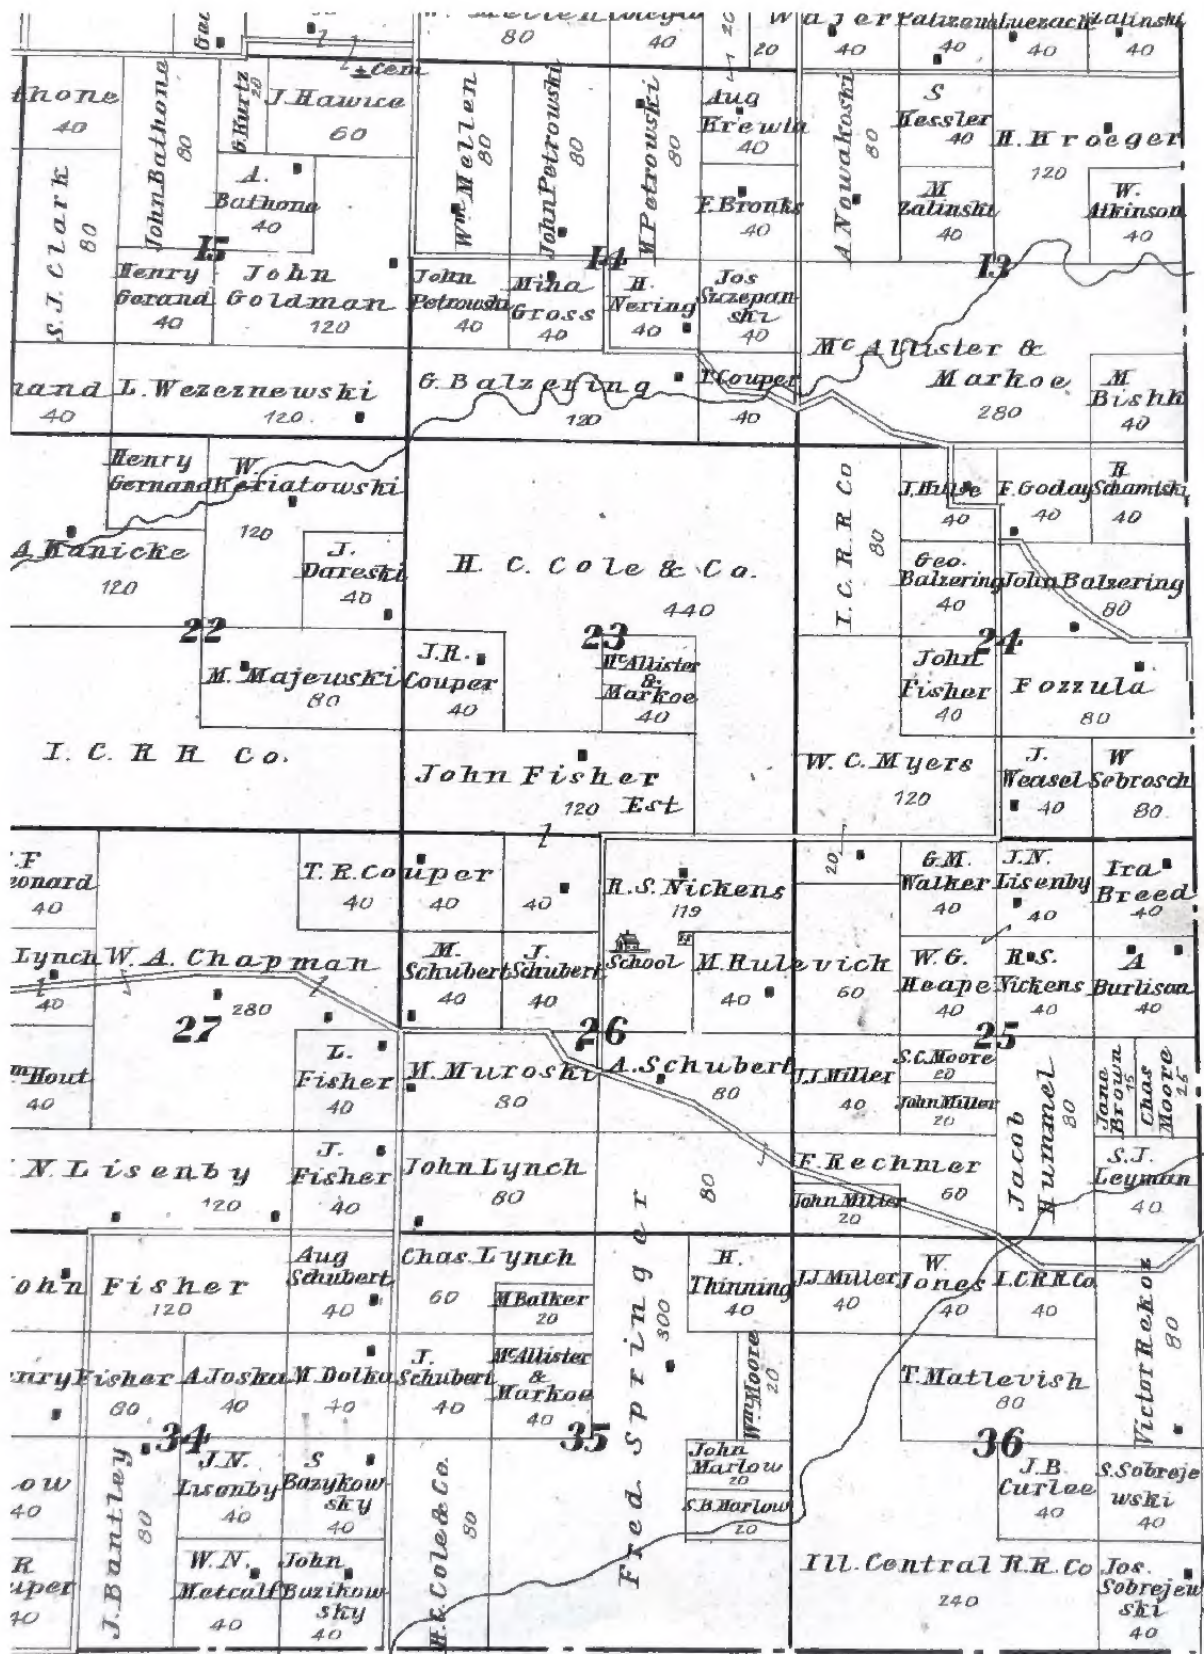 80
40
20
20
Wajer
40
40
40
Zalinski
40
cem
thone
40
John Bathone
80
G. Kurtz
20
J. Hawice
60
Wm Mellen
80
John Petrowski
80
W. Petrowski
80
Aug
Krewia
40
A Nowakoski
80
S
Kessler
40
H. Kroeger
120
S. J. Clark
80
A.
Bathone
40
F. Bronks
40
M
Zalinski
40
W.
Atkinson
40
15
14
13
Henry
Gerand
40
John
Goldman
120
John
Petrowski
40
Mina
Gross
40
H.
Nering
40
Jos
Szczepan
ski
40
Mc Allister &
Markoe
280
M
Bishk
40
nand
40
L. Wezeznewski
120
G. Balzering
120
T. Couper
40
Henry
Gernand
W.
Keriatowski
120
A Kanicke
120
J.
Dareski
40
H. C. Cole & Co.
440
I. C. R R Co
80
J. Hulse
40
F. Goday
40
H
Schamiski
40
Geo.
Balzering
40
John Balzering
80
22
23
24
M. Majewski
80
J.R.
Couper
40
McAllister
&
Markoe
40
John
Fisher
40
Fozzula
80
I. C. R R Co.
John Fisher
120 Est
W. C. Myers
120
J.
Weasel
40
W
Sebrosch
80
F
eonard
40
T. R. Couper
40
40
40
R. S. Nickens
119
20
G.M.
Walker
40
J.N.
Lisenby
40
Ira
Breed
40
Lynch
40
W. A. Chapman
280
M.
Schubert
40
J.
Schubert
40
School
M. Rulevick
40
60
W. G.
Heape
40
R. S.
Nickens
40
A
Burlison
40
27
26
25
m Hout
40
L.
Fisher
40
M. Muroski
80
A. Schubert
80
J.J. Miller
40
S.C. Moore
20
John Miller
20
Jacob
Hummel
80
Jane
Brown
15
Chas
Moore
25
N. Lisenby
120
J.
Fisher
40
John Lynch
80
80
F. Rechner
60
John Miller
20
S.J.
Leyman
40
ohn Fisher
120
Aug
Schubert
40
Chas. Lynch
60
M Balker
20
Fred. Springer
300
H.
Thinning
40
J.J. Miller
40
W.
Jones
40
I.C.R.R. Co
40
Victor Rekoz
80
enry Fisher
80
A Joska
40
M Dolka
40
J.
Schubert
40
McAllister
&
Markoe
40
Wm Moore
20
T. Matlevish
80
34
35
36
ow
40
J. Bantley
80
J.N.
Lisenby
40
S
Bazykow
sky
40
H.C. Cole & Co.
80
John
Marlow
20
S.B. Marlow
20
J.B.
Curlee
40
S. Sobreje
wski
40
R
uper
40
W. N.
Metcalf
40
John
Buzikow
sky
40
Ill. Central R.R. Co
240
Jos.
Sobrejew
ski
40